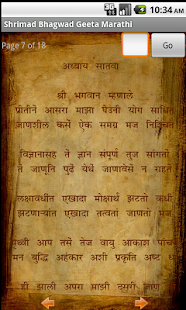 10:34 AM
Shrimad Bhagwad Geeta Marathi
Page 7 of 18
Go
अध्याय सातवा
श्री भगवान म्हणाले
प्रीतीनें आसरा माझा घेउनी योग साधित
जाणशील कसें ऐक समग्र मज निश्चित
विज्ञानासह तें ज्ञान संपूर्ण तुज सांगतो
तें जाणूनि पुढें येथें जाणावेसें न राहते
लक्षावधींत एखादा मोक्षार्थ झटतो कधीं
झटणाऱ्यांत एखादा तत्वतां जाणतो मज
पृथ्वी आप तसें तेज वायु आकाश पांचवे
मन बुद्धि अहंकार अशी प्रकृति अष्ट
ही झाली अपरा माझी दुसरी जाण